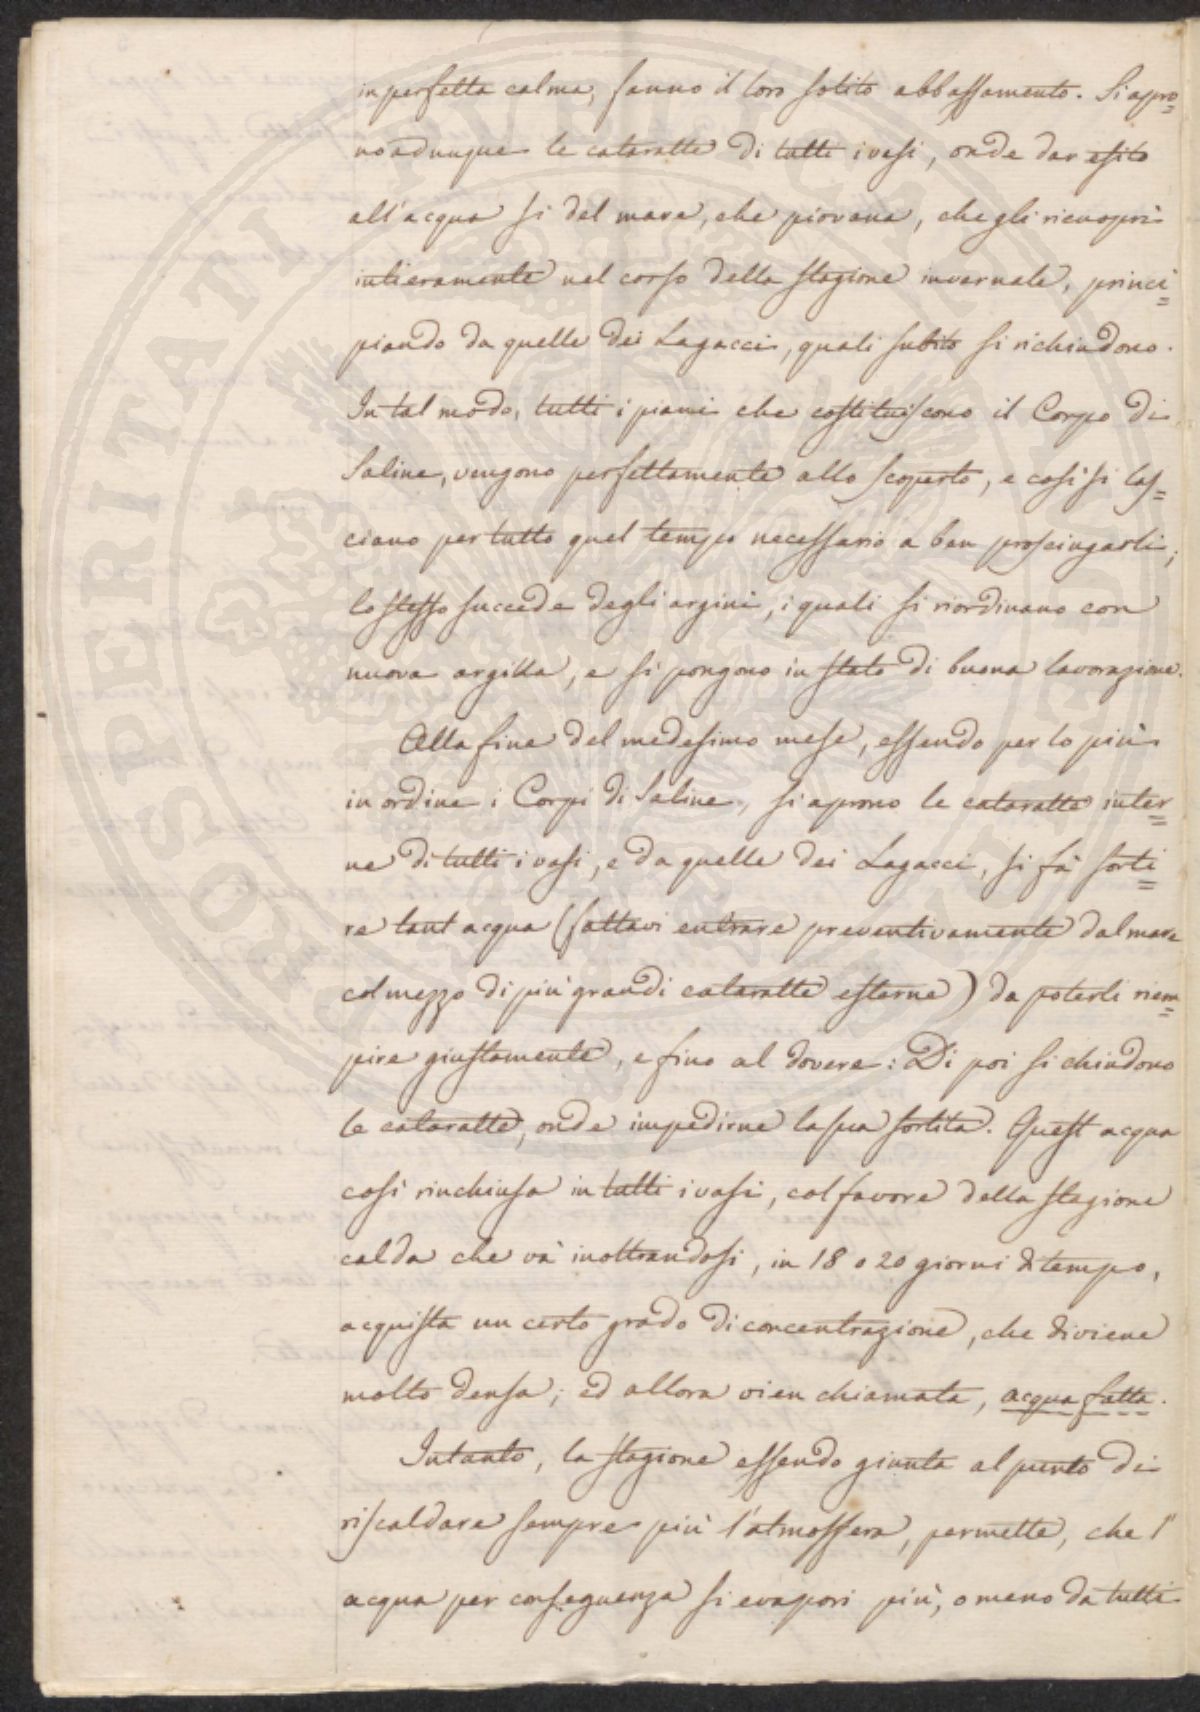 in perfetta calma, fanno il loro solito abbassamento. Si apro=
no adunque le cataratte di tutti i vasi, onde dar esito
all'acqua sì del mare, che piovana, che gli ricuoprì
intieramente nel corso della stagione invernale, princi=
piando da quelle dei Lagacci, quali subito si richiudono.
In tal modo, tutti i piani che costituiscono il Corpo di
Saline, vengono perfettamente allo scoperto, e così si las=
ciano per tutto quel tempo necessario a ben prosciugarli;
lo stesso succede degli argini, i quali si riordinano con
nuova argilla, e si pongono in stato di buona lavorazione.
Alla fine del medesimo mese, essendo per lo più
in ordine i Corpi di Saline, si aprono le cataratte inter=
ne di tutti i vasi, e da quelle dei Lagacci, si fà sorti=
re tant acqua (fattavi entrare preventivamente dal mare
col mezzo di più grandi cataratte esterne) da poterli riem=
pire giustamente, e fino al dovere: Di poi si chiudono
le cataratte, onde impedirne la sua sortita. Quest acqua
così rinchiusa in tutti i vasi, col favore della stagione
calda che và inoltrandosi, in 18 o 20 giorni di tempo,
acquista un certo grado di concentrazione, che diviene
molto densa; ed allora vien chiamata, acqua fatta.
Intanto, la stagione essendo giunta al punto di
riscaldare sempre più l'atmosfera, permette, che l'
acqua per conseguenza si evapori più, o meno da tutti
PROSPERITATI PUBLICAE AUGENDAE